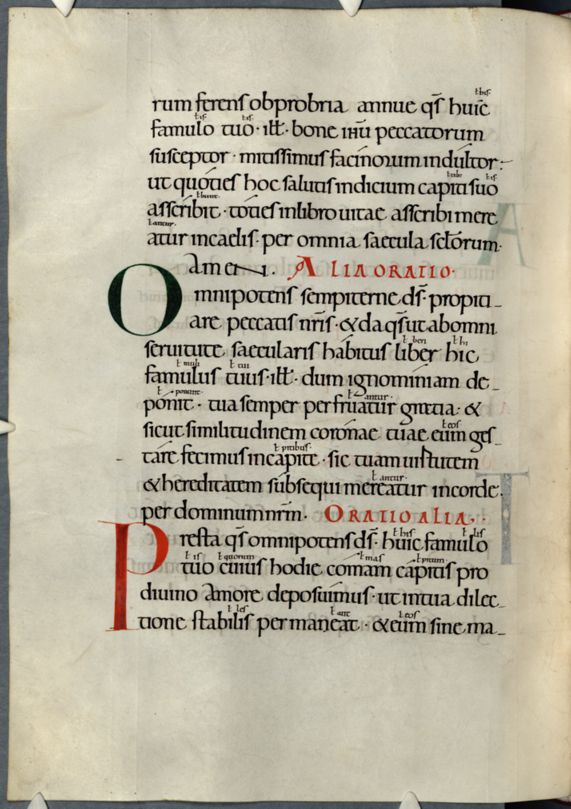 rum ferens obprobria annue qs̄ huic
famulo tuo · ill̄ · bone ihū peccatorum
susceptor · mitissimus facinorum indultor ·
ut quoties hoc salutis indicium capiti suo
asscribit · toties in libro uitae asscribi mere
atur in caelis · per omnia saecula sclōrum ·
Amen · ALIA ORATIO ·
Omnipotens sempiterne dš · propiti
are peccatis nr̄is · & da qs̄ ut ab omni
seruitute saecularis habitus liber hic
famulus tuus · ill̄ · dum ignominiam de
ponit · tua semper perfruatur gratia · &
sicut similitudinem coronae tuae eum ges
tare fecimus in capite · sic tuam uirtutem
& hereditatem subsequi mereatur in corde ·
per dominum nr̄m · ORATIO ALIA ·
Presta qs̄ omnipotens dš · huic famulo
tuo cuius hodie comam capitis pro
diuino amore deposuimus · ut in tua dilec
tione stabilis permaneat · & eum sine ma